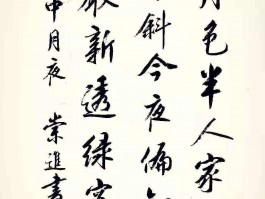 月色半人家
斜今夜偏知
新透绿窗
中月夜 崇進書